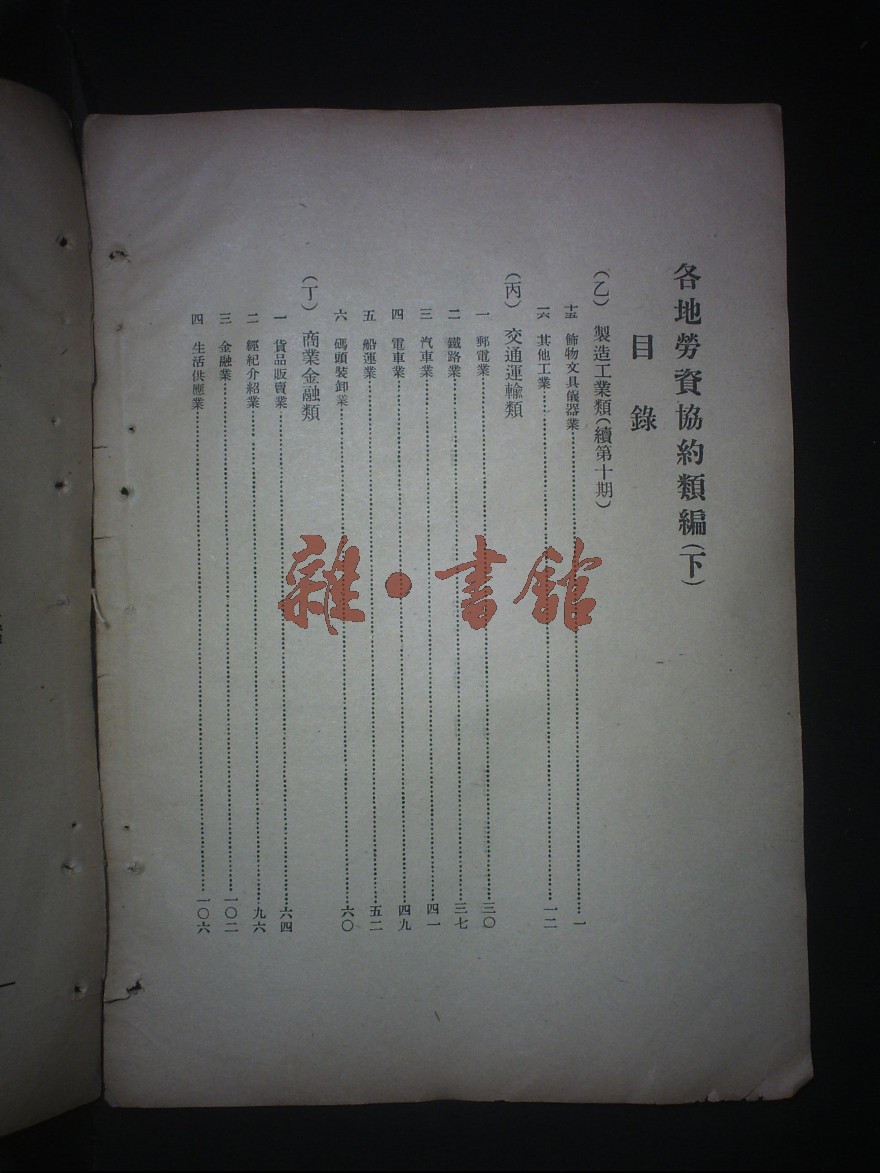 各地勞資協約類編(下)
目錄
(乙) 製造工業類(續第十期)
十五 飾物文具儀器業……一
十六 其他工業……一二
(丙) 交通運輸類
一 郵電業……三〇
二 鐵路業……三七
三 汽車業……四一
四 電車業……四九
五 船運業……五二
六 碼頭裝卸業……六〇
(丁) 商業金融類
一 貨品販賣業……六四
二 經紀介紹業……九六
三 金融業……一〇二
四 生活供應業……一〇六
雜·書館